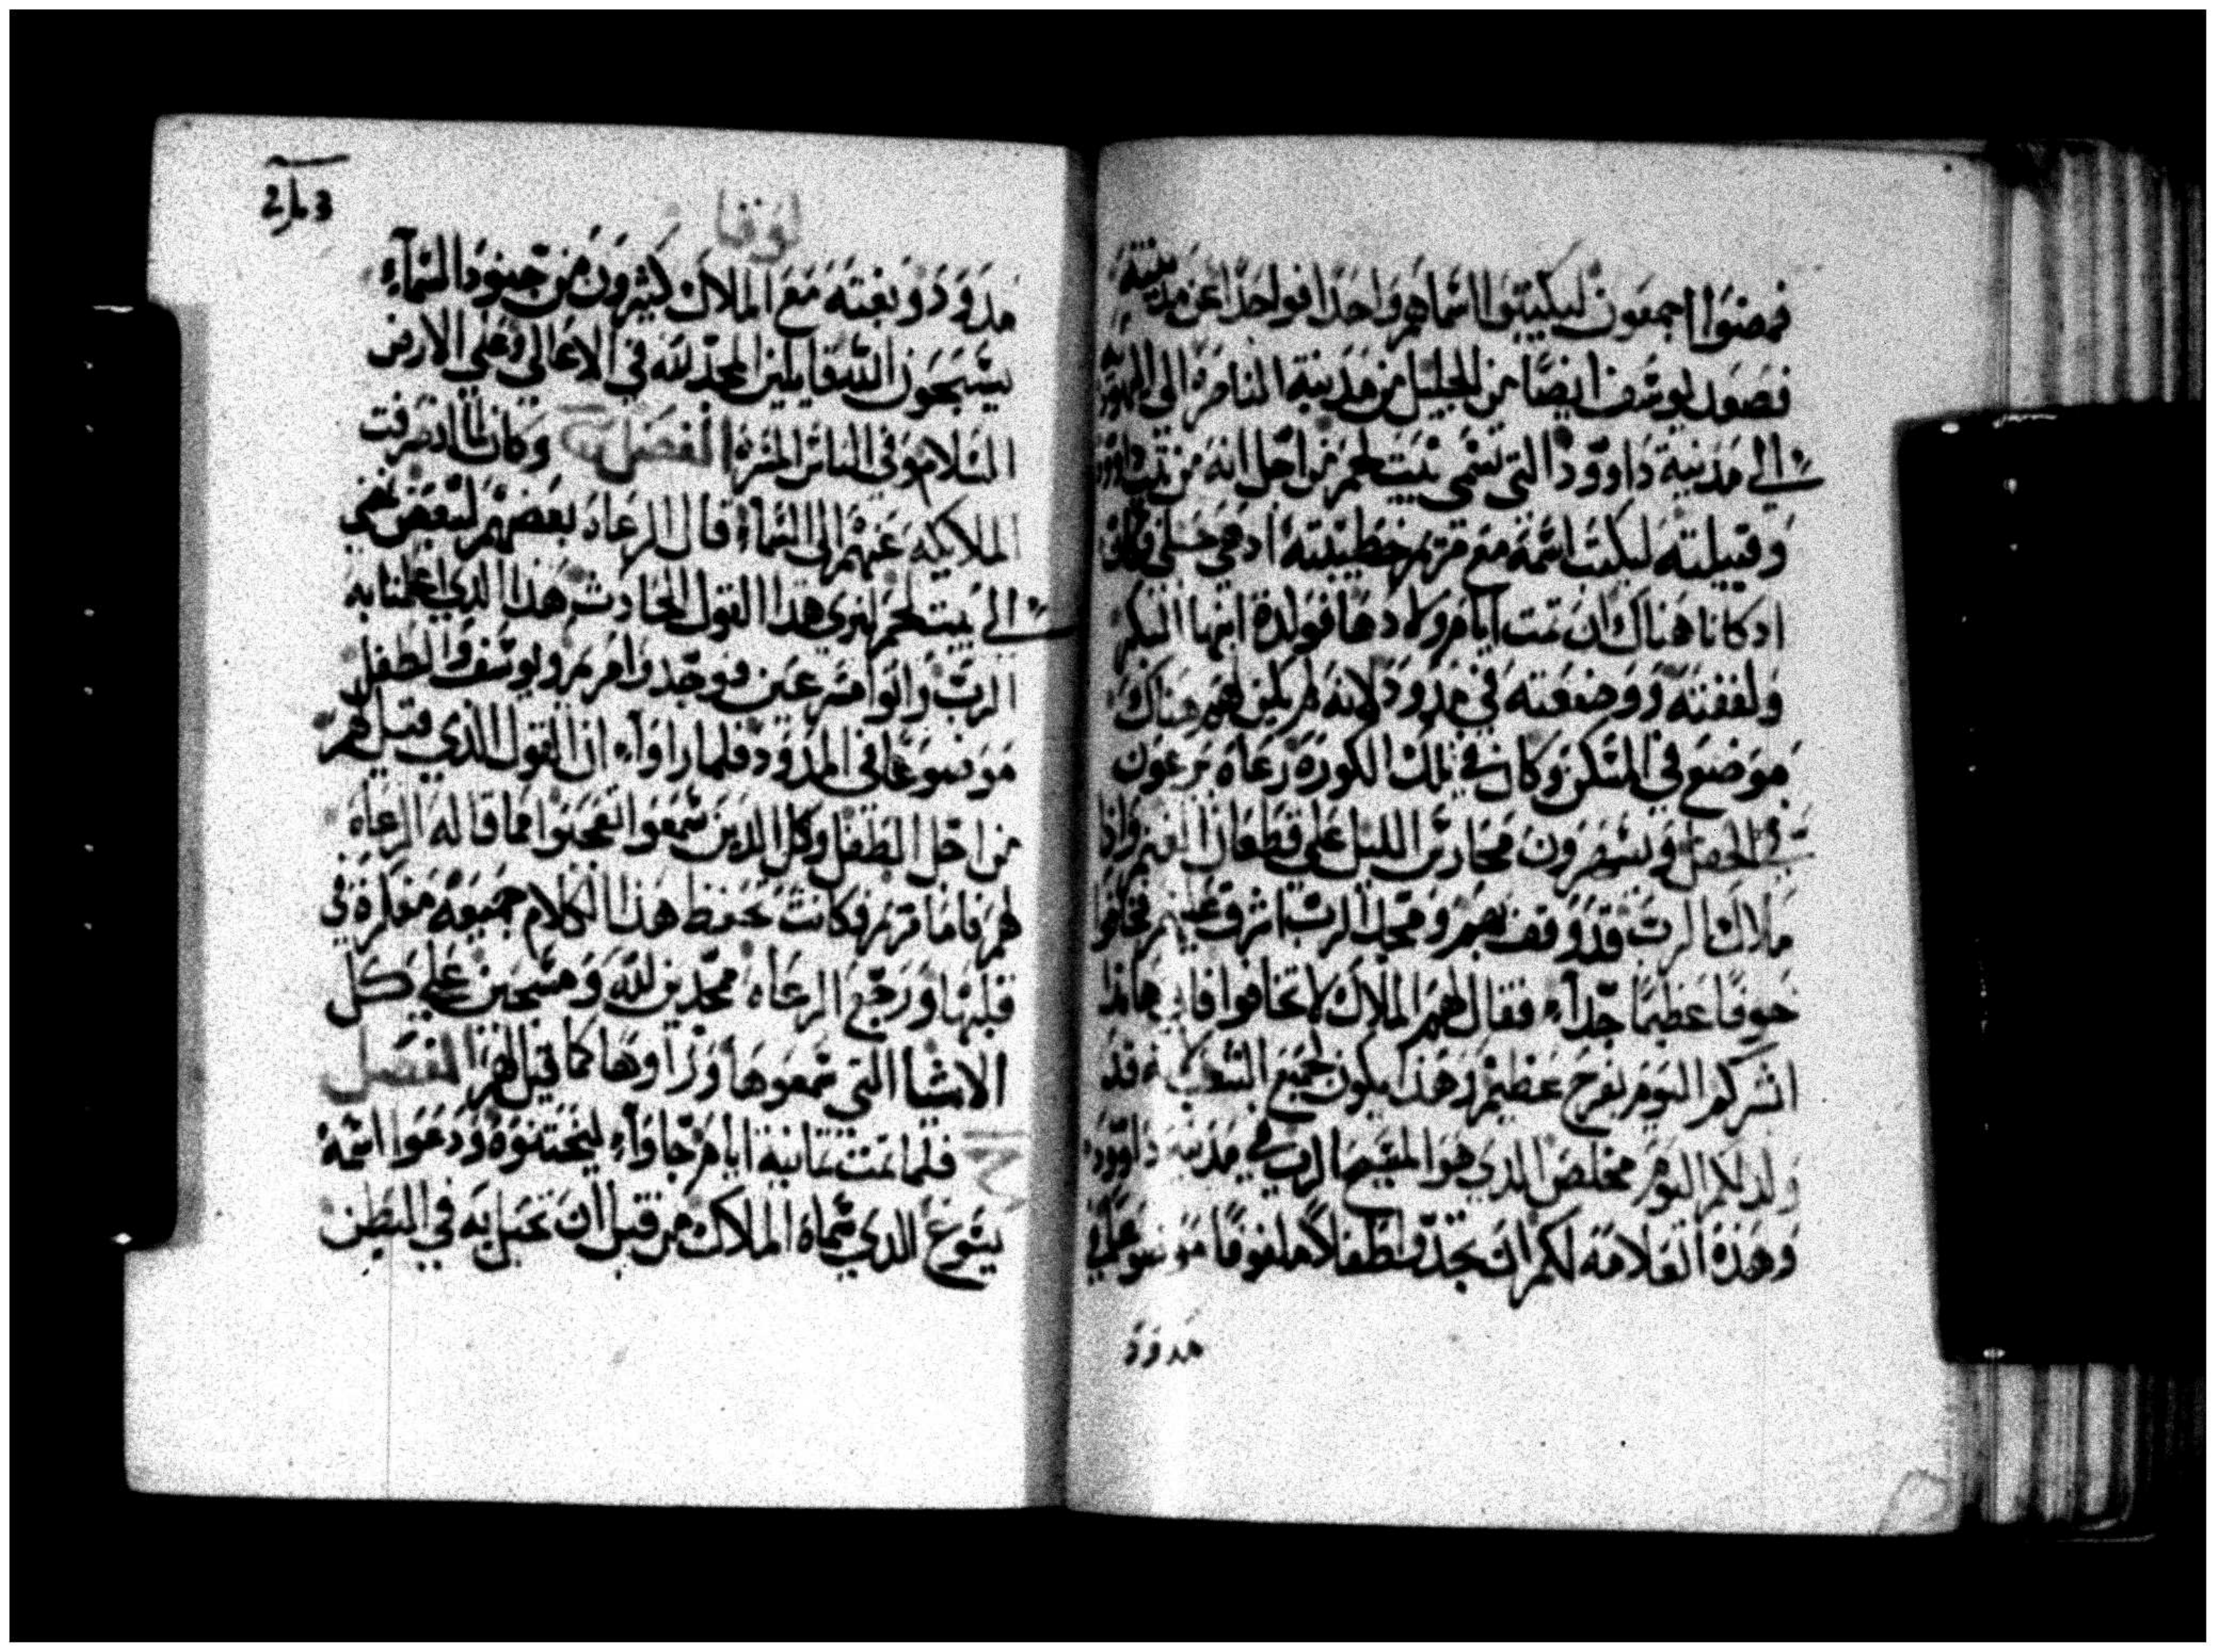 فمضوا اجمعون ليكتبوا اسماهم واحدا فواحدا عن مدينته
فصعد يوسف ايضا من الجليل من مدينة الناصرة الي اليهوديه
الي مدينة داوود التي تسمي بيت لحم من اجل انه من بيت داوود
وقبيلته ليكتب اسمه مع مريم خطيبته ادهي حبلي فلما
ادكانا هناك ان تمت ايام ولادها فولدة ابنها البكر
ولففته ووضعته في مدود لانه لم يكن لهم هناك
موضع في المسكن وكان في تلك الكورة رعاة يرعون
في الحقل ويسهرون محارس الليل علي قطعان الغنم واذا
ملاك الرب قد وقف بهم ومجد الرب اشرق عليهم فخافوا
خوفا عظيما جداً فقال لهم الملاك لا تخافوا فاني هاندا
ابشركم اليوم بفرح عظيم وهذا يكون لجميع الشعب قد
ولد لكم اليوم مخلص الدي هو المسيح الرب في مدينة داوود
وهذه العلامة لكم ان تجدوا طفلا ملفوفا موضوعا في
مدود
لوقا
مدود وبغتة مع الملاك كثيرون من جنود السماء
يسبحون الله قايلين المجد لله في الاعالي وعلي الارض
السلام وفي الناس المسرة الفصل وكان لما انصرفت
الملايكه عنهم الي السماء قال الرعاه بعضهم لبعض نمضي
الي بيت لحم لنري هدا القول الحادث هذا الدي اعلمنا به
الرب واتوا مسرعين فوجدوا مريم ويوسف والطفل
موضوعا في المدود فلما راواء ان القول الذي قيل لهم
من اجل الطفل وكل الدين سمعوا تعجبوا مما قاله الرعاه
لهم فاما مريم فكانت تحفظ هذا الكلام جميعه مفكرة في
قلبها ورجع الرعاه ممجدين لله ومسبحين علي كل
الاشيا التي سمعوها وراوها كما قيل لهم الفصل
فلما تمت تمانية ايام جاواء ليختنوه ودعوا اسمه
يسوع الدي سماه الملاك من قبل ان تحبل به في البطن